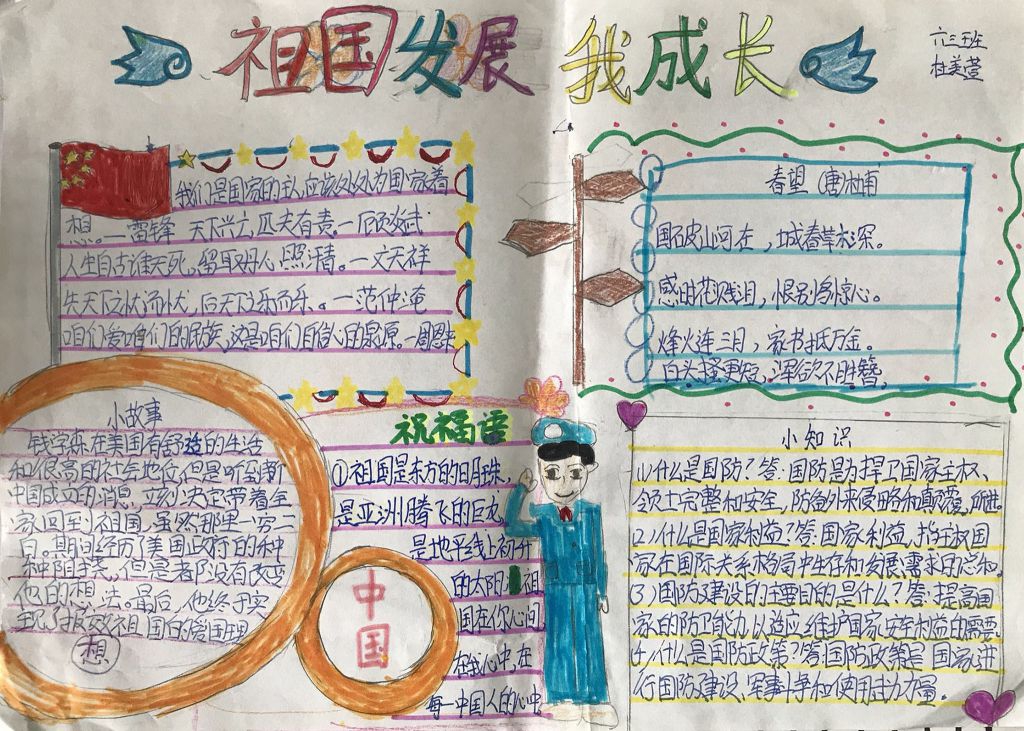 祖国发展 我成长
六三班
杜美萱
我们是国家的主人,应该处处为国家着
想。—雷锋 天下兴亡,匹夫有责。—顾炎武
人生自古谁无死,留取丹心照汗青。—文天祥
先天下之忧而忧,后天下之乐而乐。—范仲淹
咱们爱咱们的民族,这是咱们自信心的泉原。—周恩来
春望 (唐)杜甫
国破山河在,城春草木深。
感时花溅泪,恨别鸟惊心。
烽火连三月,家书抵万金。
白头搔更短,浑欲不胜簪。
小故事
钱学森在美国有舒适的生活
和很高的社会地位,但是听到新
中国成立的消息,立刻决定带着全
家回到祖国,虽然那里一穷二
白。期间经历了美国政府的种
种阻挠,但是都没有改变
他的想法。最后,他终于实
现了报效祖国的爱国理
想
祝福语
①祖国是东方的明珠,
是亚洲腾飞的巨龙,
是地平线上初升
的太阳。祖
国在你心间
在我心中,在
每一中国人的心中
中
国
小知识
1,什么是国防?答:国防是为捍卫国家主权、
领土完整和安全,防备外来侵略和颠覆,所进。
(2)什么是国家利益?答:国家利益,指主权国
家在国际关系格局中生存和发展需求的总和。
(3)国防建设的主要目的是什么?答:提高国
家的防卫能力以适应维护国家安全利益的需要
4,什么是国防政策?答:国防政策是国家进
行国防建设、军事斗争和使用武力力量。